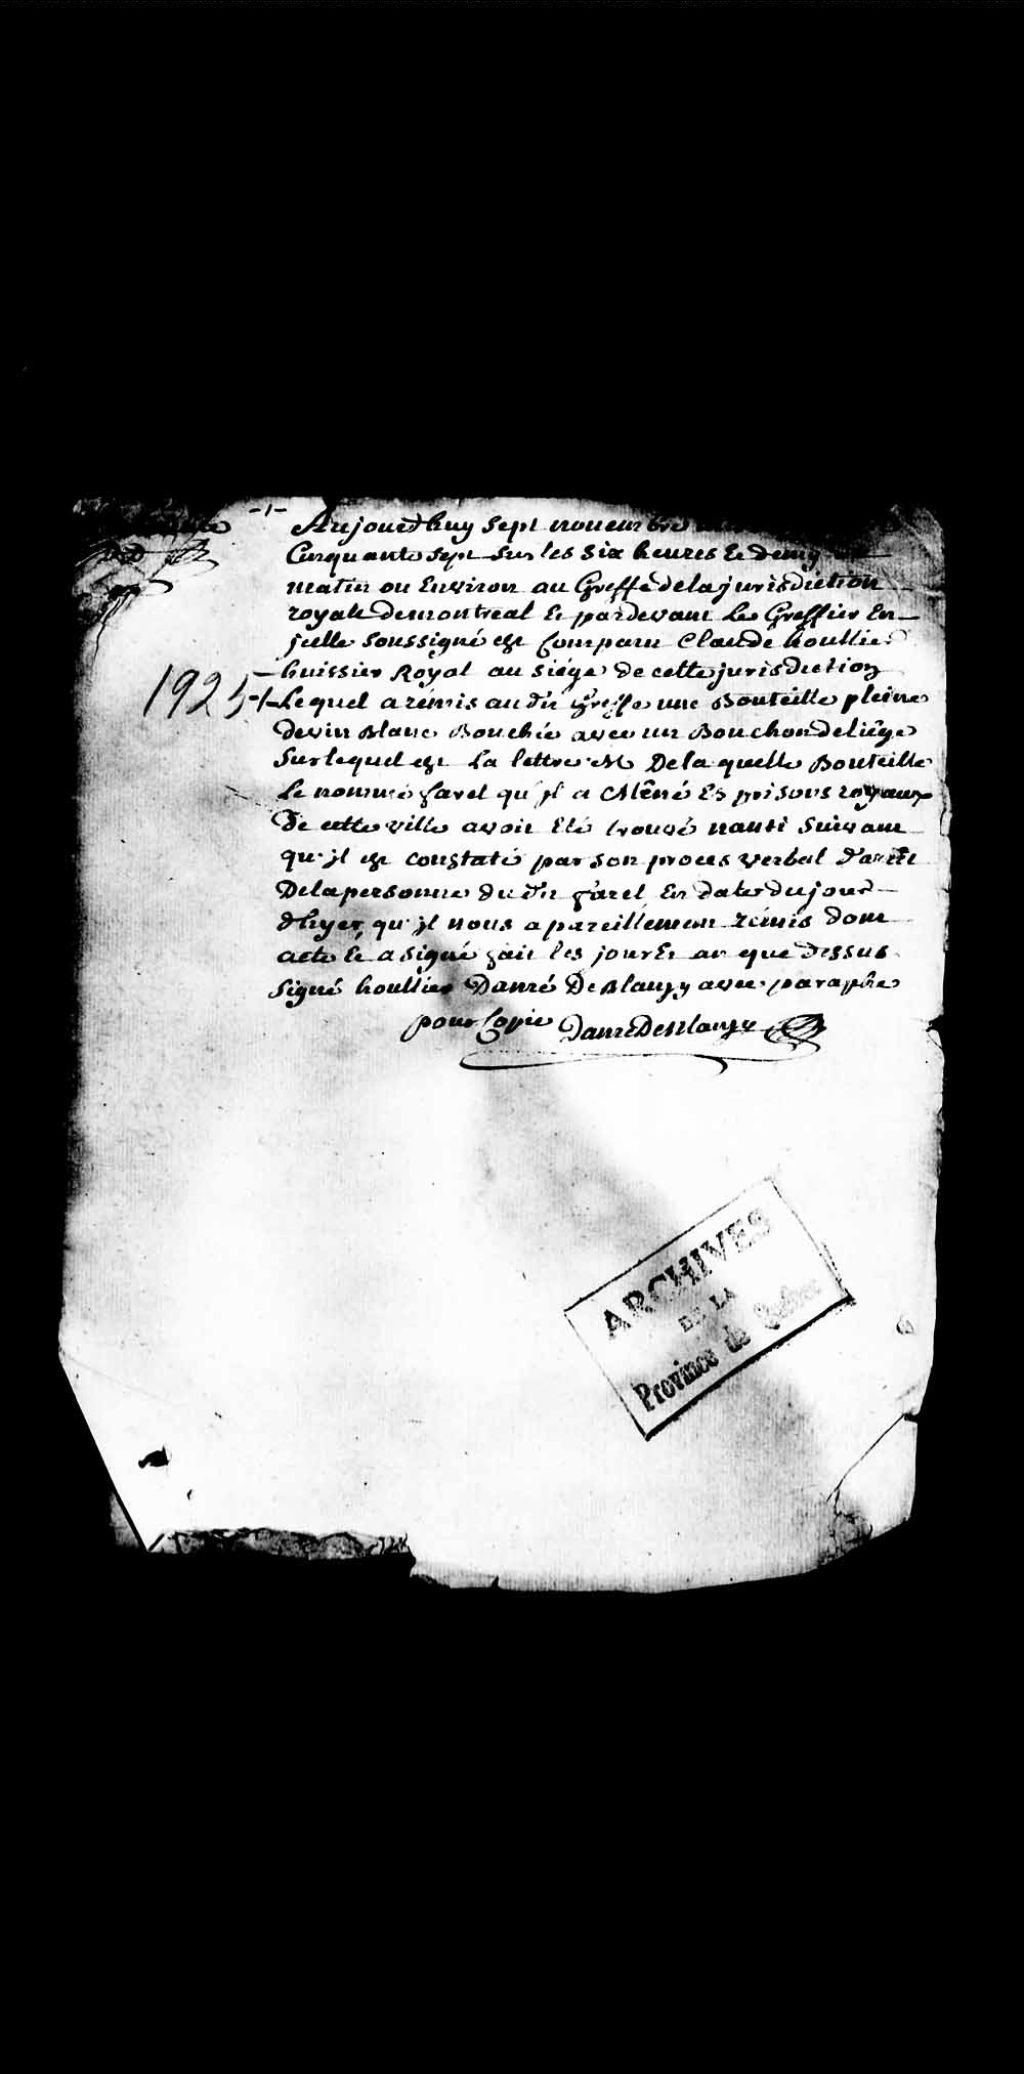 -1-
Aujourdhuy sept nouembre
Cinquante sept sur les six heures Et demy
matin ou Environ au Greffe de la jurisdiction
royale de montreal Et pardevant Le Greffier En
jcelle soussigné est Comparu Claude houllier
huissier Royal au siége de cette jurisdiction
1925
-/- Lequel a rémis au dit greffe une Bouteille pleine
de vin Blanc Bouchée avec un Bouchon de liége
sur lequel est La lettre M De la quelle Bouteille
Le nommé farel qu'jl a Mêné Es prisons royaux
De cette ville avoit Eté trouvé nanti suivant
qu'jl est constaté par son proces verbal
De la personne du dit farel En date du jour
d'hyer, qu'jl nous a pareillement rémis dont
acte Et a signé fait les jour Et an que Dessus
signé houllier Danré De Blanzy avec paraphe
pour Copie DanréDeBlanzy
ARCHIVES
DE LA
Province de Québec